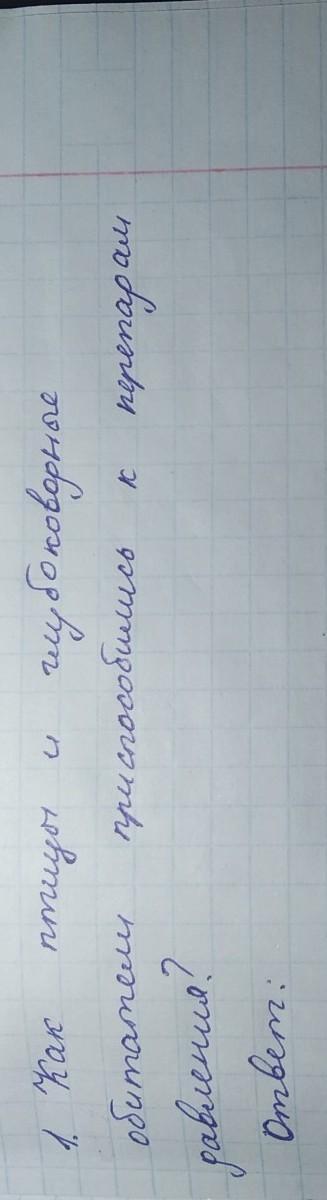 1. Как птицы и глубоководные
обитатели приспособились к перепадам
давления?
Ответ: